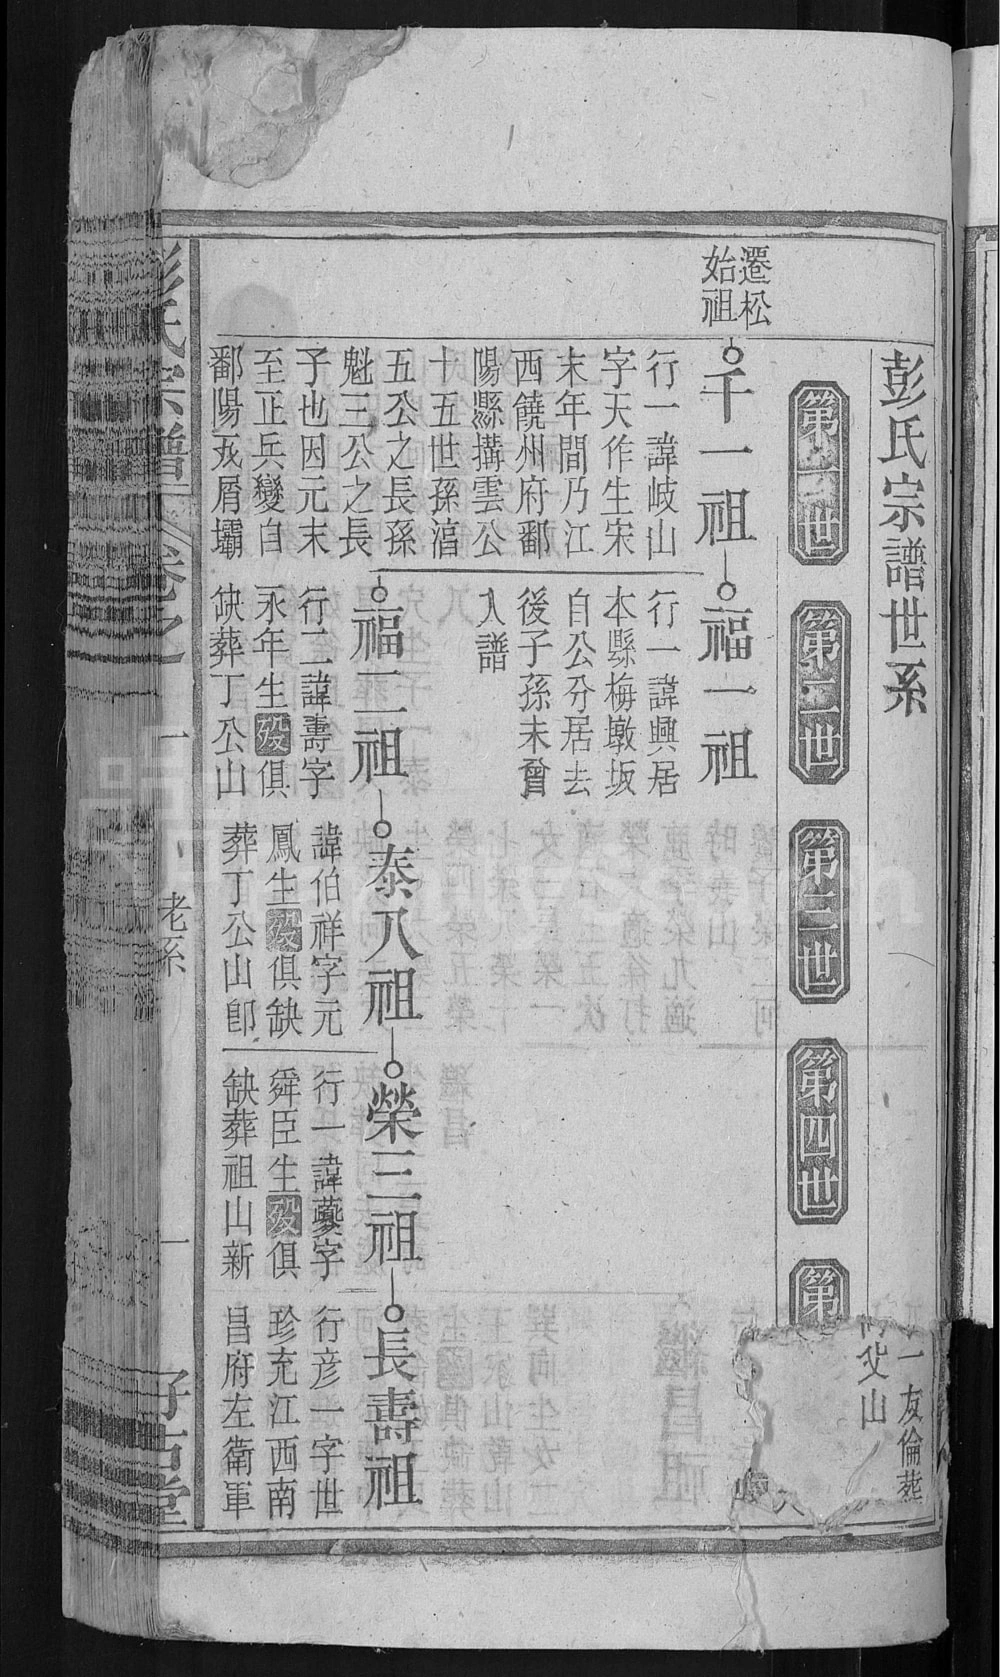 彭氏宗譜世系
第一世
第二世
第三世
第四世
第
遷松
始祖
千一祖
行一諱岐山
字天作生宋
末年間乃江
西饒州府鄱
陽縣搆雲公
十五世孫滔
五公之長孫
魁三公之長
子也因元末
至正兵變自
鄱陽瓦屑壩
福一祖
行一諱興居
本縣梅墩坂
自公分居去
後子孫未曾
入譜
福二祖
行二諱壽字
永年生歿俱
缺葬丁公山
泰八祖
諱伯祥字元
鳳生歿俱缺
葬丁公山卽
榮三祖
行一諱夔字
舜臣生歿俱
缺葬祖山新
長壽祖
行彦一字世
珍充江西南
昌府左衛軍
彭氏宗譜
卷之
一
老系
一
一友倫葬
父山